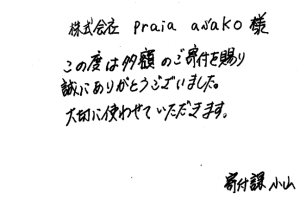 株式会社 praia asako 様
この度は多額のご寄付を賜り
誠にありがとうございました。
大切に使わせていただきます。
寄付課 小山